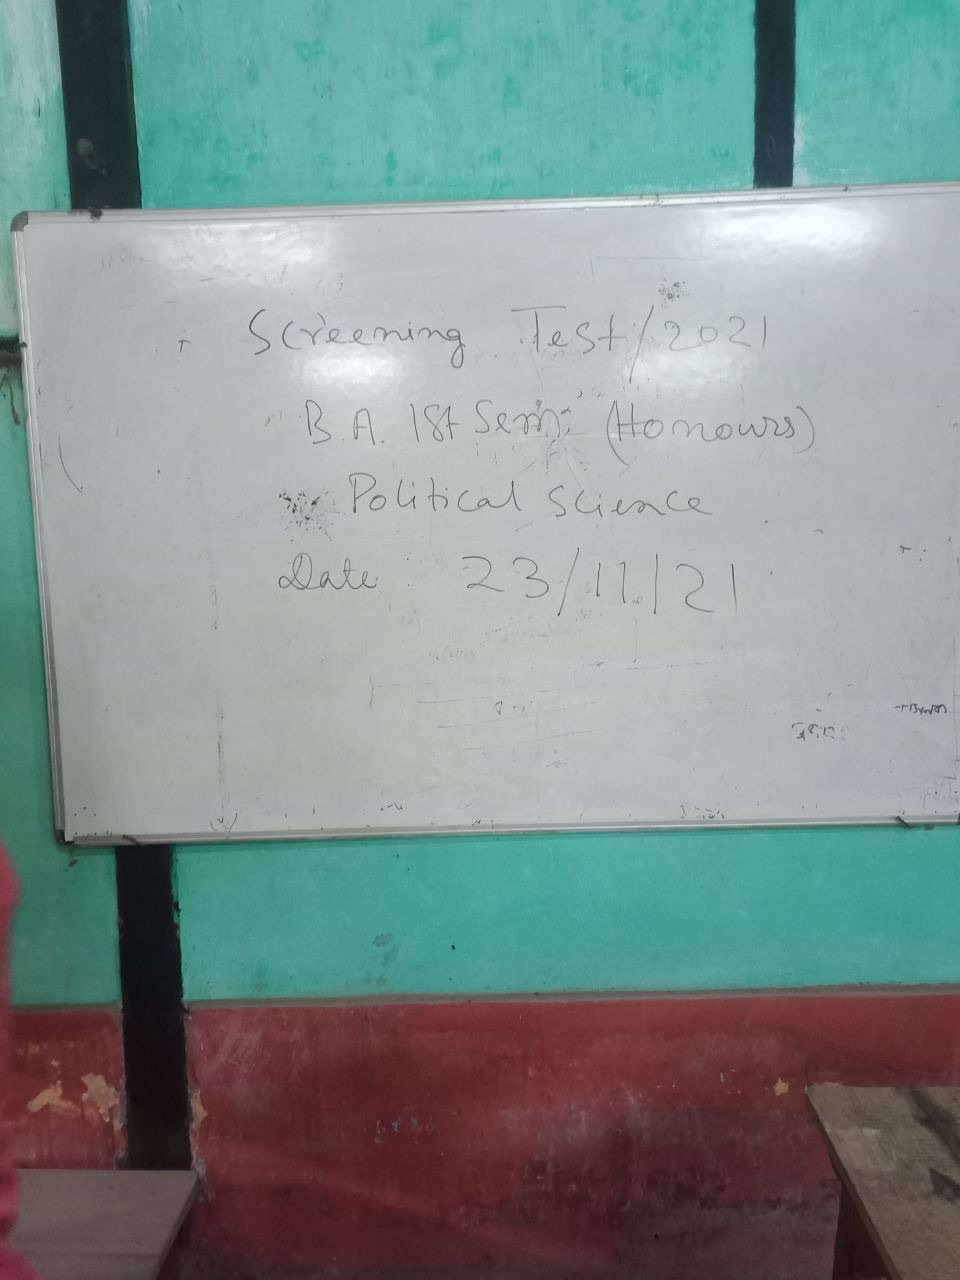 Screening Test/2021
B.A. 1st Sem: (Honours)
Political Science
Date: 23/11/21